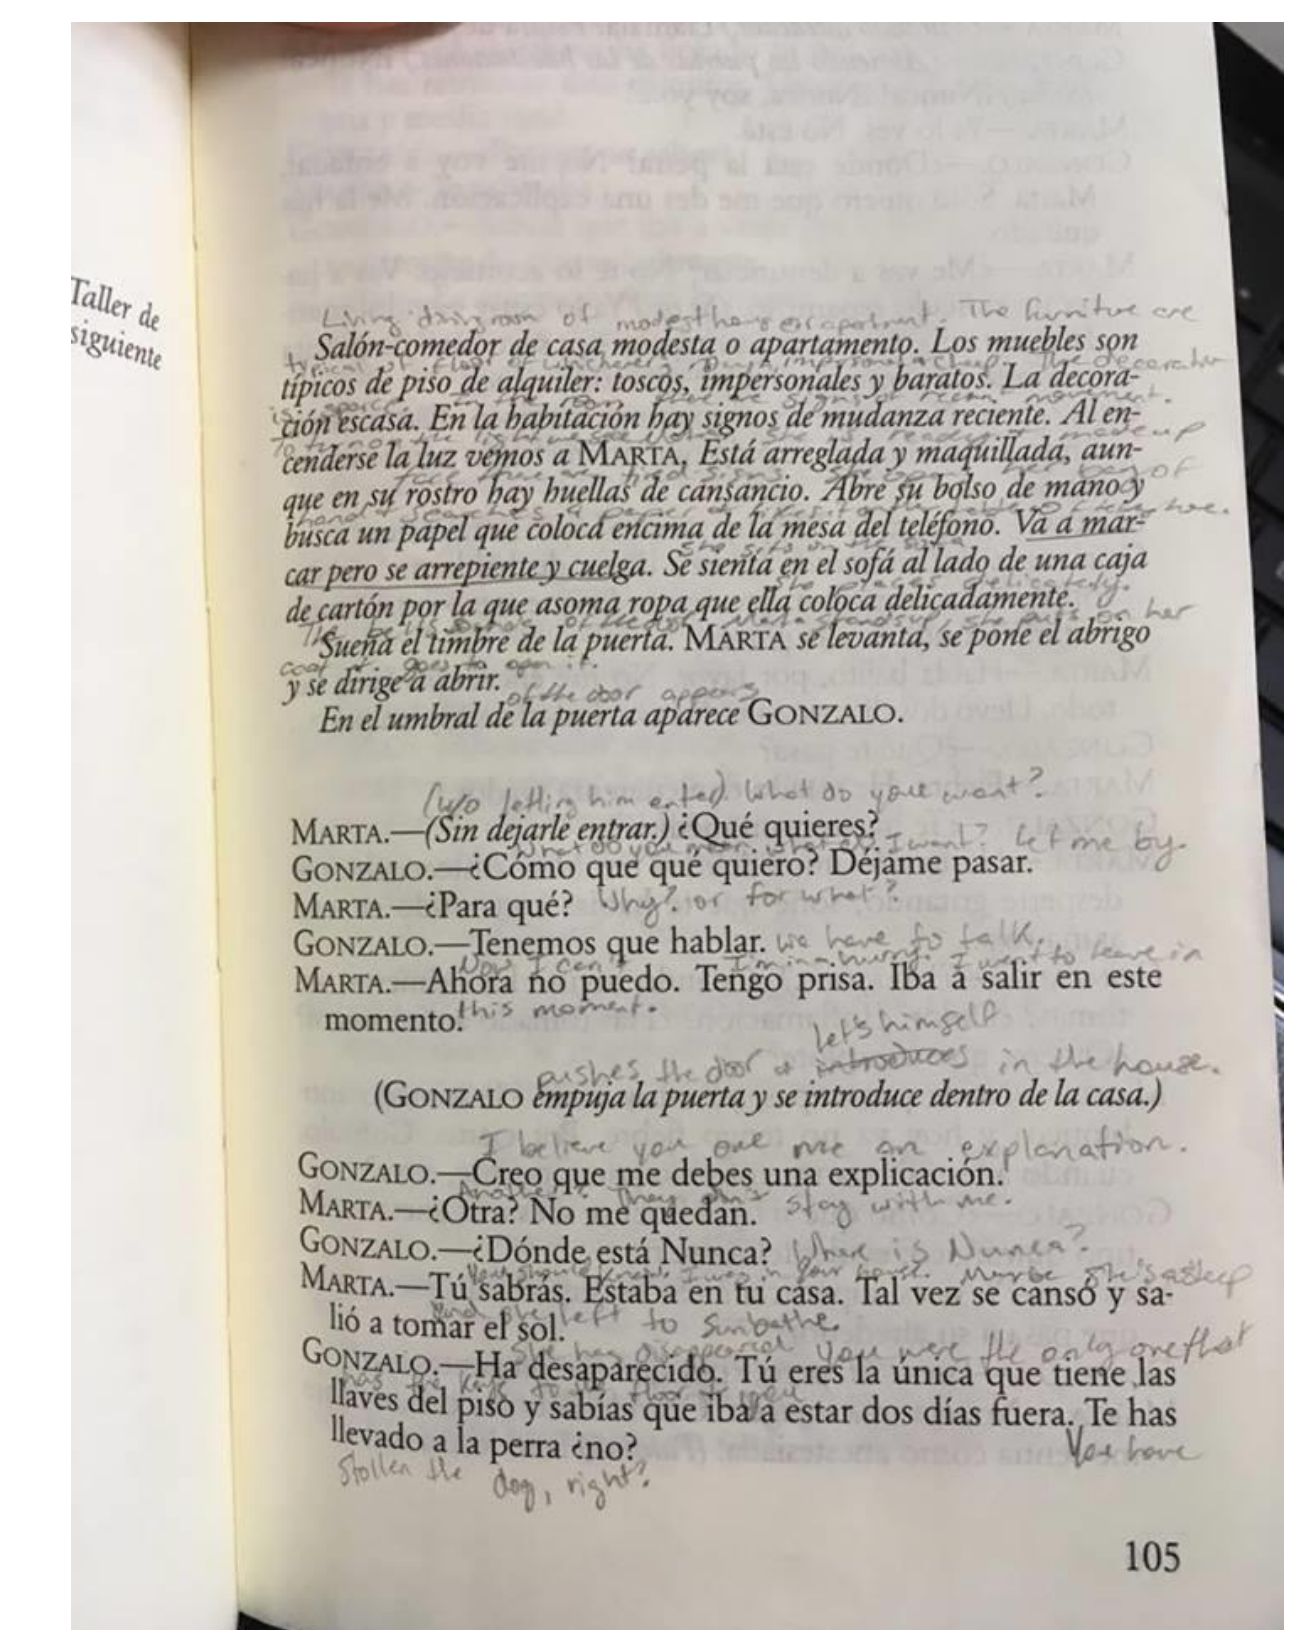 Taller de
siguiente
Living dining room of modest house or apartment. The furniture are
Salón-comedor de casa modesta o apartamento. Los muebles son
typical of
típicos de piso de alquiler: toscos, impersonales y baratos. La decora-
ción escasa. En la habitación hay signos de mudanza reciente. Al en-
cenderse la luz vemos a MARTA. Está arreglada y maquillada, aun-
que en su rostro hay huellas de cansancio. Abre su bolso de mano y
busca un papel que coloca encima de la mesa del teléfono. Va a mar-
she sits on the sofa
car pero se arrepiente y cuelga. Se sienta en el sofá al lado de una caja
she places delicately.
de cartón por la que asoma ropa que ella coloca delicadamente.
Marta stands up, she puts on her
Suena el timbre de la puerta. MARTA se levanta, se pone el abrigo
coat & goes to open it.
y se dirige a abrir.
of the door appears
En el umbral de la puerta aparece GONZALO.
(w/o letting him enter). What do you want?
MARTA.—(Sin dejarle entrar.) ¿Qué quieres?
What do you mean what do I want? Let me by.
GONZALO.—¿Cómo que qué quiero? Déjame pasar.
MARTA.—¿Para qué? Why? or for what?
GONZALO.—Tenemos que hablar. we have to talk.
Now I can't I'm in a hurry. I went to leave in
MARTA.—Ahora no puedo. Tengo prisa. Iba a salir en este
momento. this moment.
let's himself
pushes the door & introduces in the house.
(GONZALO empuja la puerta y se introduce dentro de la casa.)
I believe you owe me an explanation.
GONZALO.—Creo que me debes una explicación.
Another? They don't stay with me.
MARTA.—¿Otra? No me quedan.
GONZALO.—¿Dónde está Nunca? Where is Nunca?
You should know. I was in your house. Maybe she's asleep
MARTA.—Tú sabrás. Estaba en tu casa. Tal vez se cansó y sa-
lió a tomar el sol. and she left to sunbathe.
She has disappeared you were the only one that
GONZALO.—Ha desaparecido. Tú eres la única que tiene las
has the keys to the floor
llaves del piso y sabías que iba a estar dos días fuera. Te has
llevado a la perra ¿no? You have
stollen the dog, right?
105